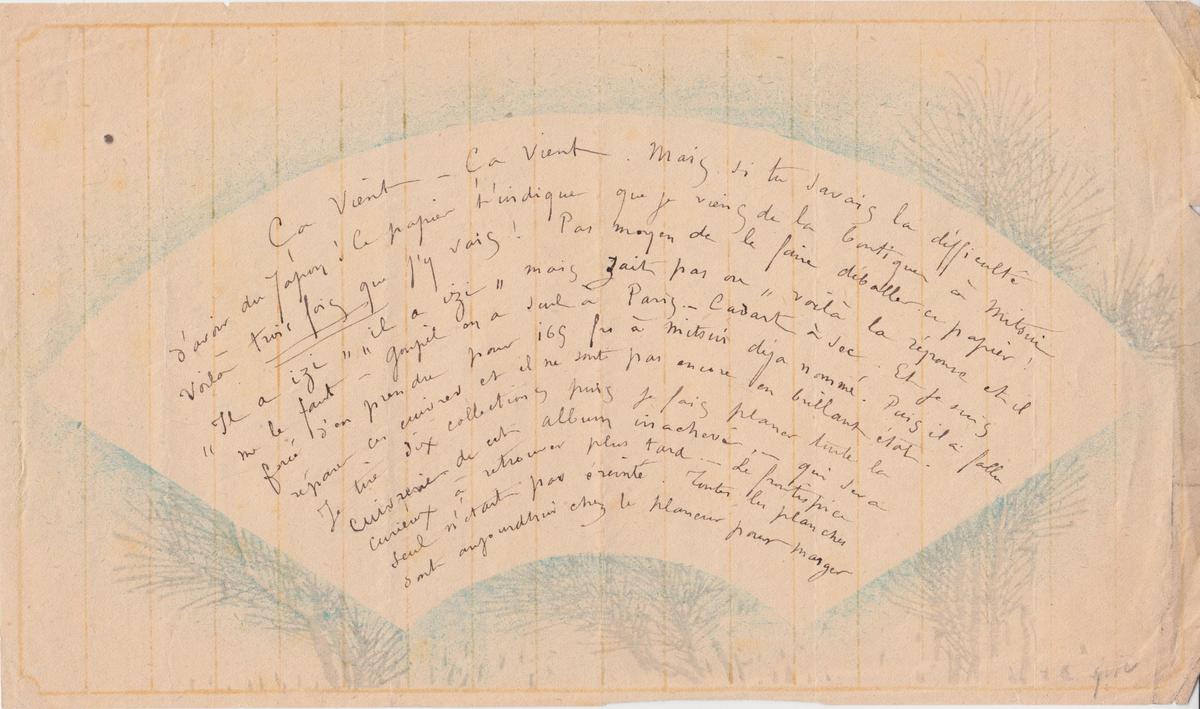 Ça Vient – Ça Vient. Mais si tu savais la difficulté
d'avoir du Japon! Ce papier t'indique que je viens de la boutique à Mitsui
Voilà trois fois que j'y vais! Pas moyen de le faire déballer ce papier!
"Il a izi" "il a izi" mais zait pas ou" voilà la réponse et il
me le faut – Goupil en a seul à Paris – Cadart à sec. Et je suis
forcé d'en prendre pour 169 frs à mitsui déja nommé. Puis il a fallu
réparer ces cuivres et il ne sont pas encore en brillant état.
Je tire dix collections puis je fais planer toute la
cuivrerie de cet album inachevé, – qui sera
curieux à retrouver plus tard – Le frontispice
seul n'étant pas ereinté. Toutes les planches
sont aujourdhui chez le planeur pour